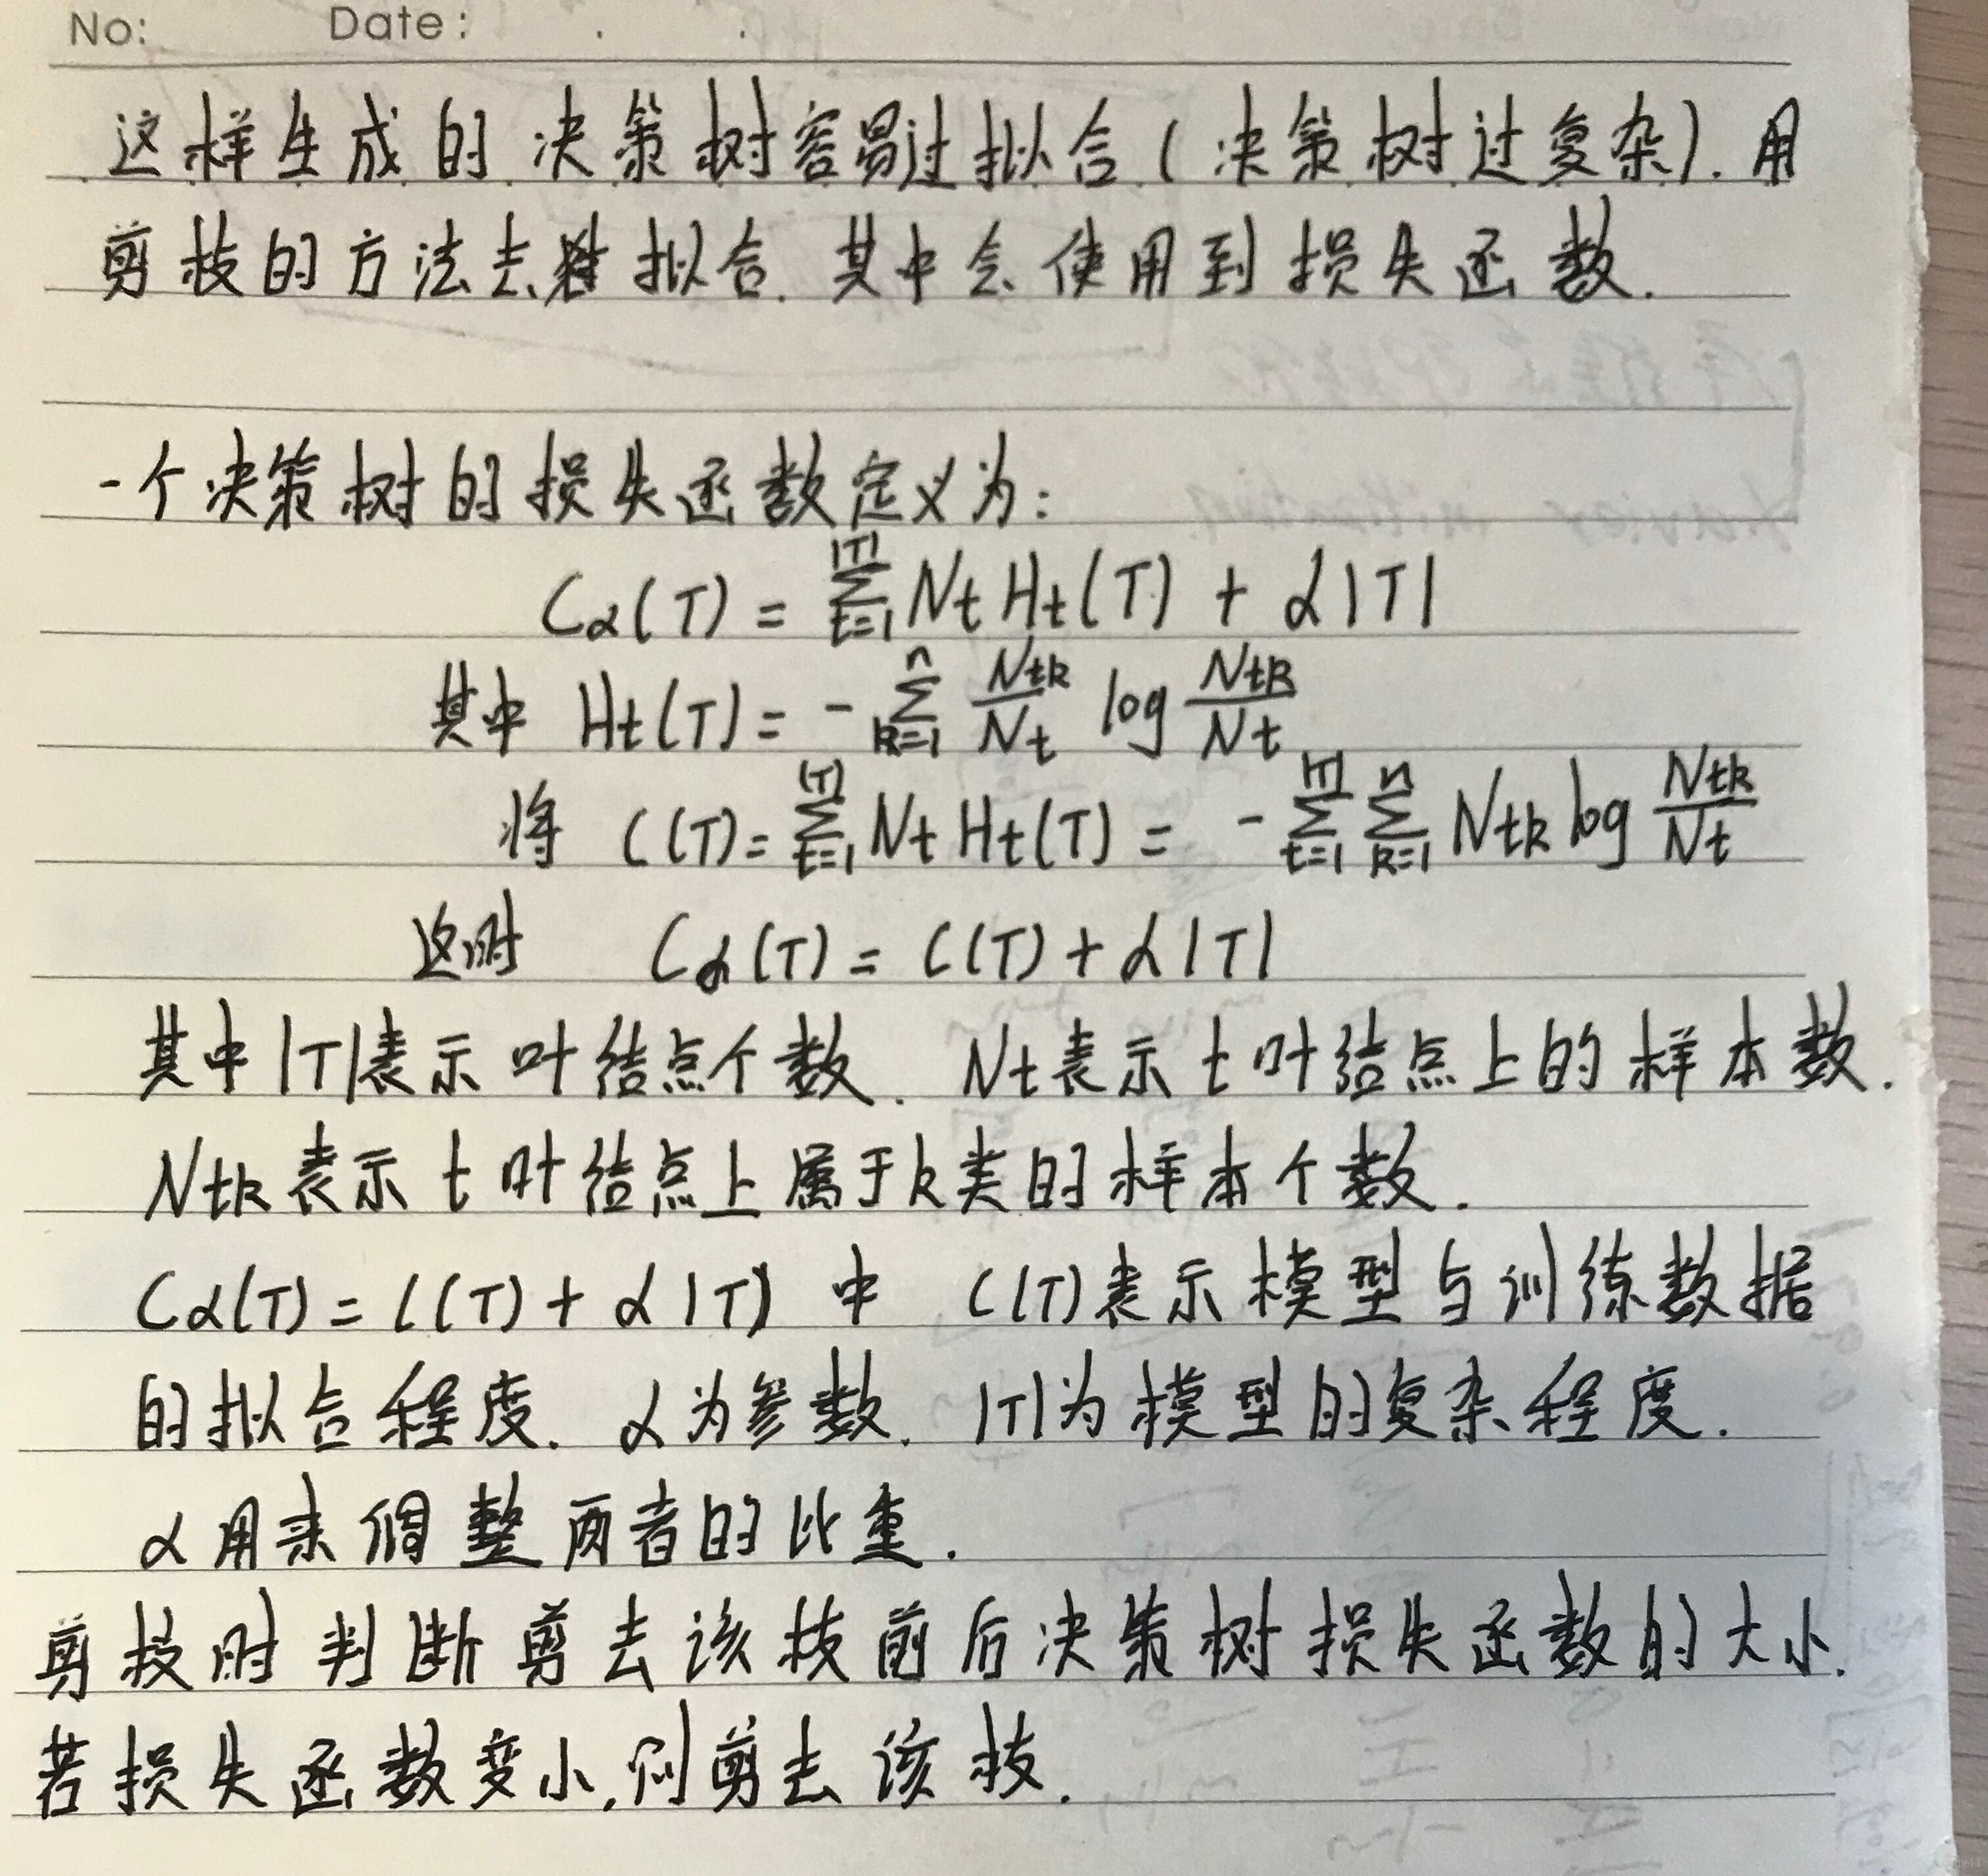 No: Date: . .
这样生成的决策树容易过拟合(决策树过复杂).用
剪枝的方法去 拟合.其中会使用到损失函数.
一个决策树的损失函数定义为:
Cα(T) = \sum_{t=1}^{|T|} Nt Ht(T) + α|T|
其中 Ht(T) = - \sum_{k=1}^{n} \frac{Ntk}{Nt} log \frac{Ntk}{Nt}
将 C(T) = \sum_{t=1}^{|T|} Nt Ht(T) = - \sum_{t=1}^{|T|} \sum_{k=1}^{n} Ntk log \frac{Ntk}{Nt}
这时 Cα(T) = C(T) + α|T|
其中|T|表示叶结点个数. Nt表示t叶结点上的样本数.
Ntk表示t叶结点上属于k类的样本个数.
Cα(T) = C(T) + α|T| 中 C(T)表示模型与训练数据
的拟合程度. α为参数. |T|为模型的复杂程度.
α用来调整两者的比重.
剪枝时判断剪去该枝前后决策树损失函数的大小.
若损失函数变小,则剪去该枝.